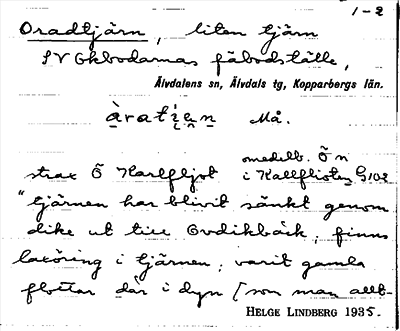 1-2
Oradtjärn, liten tjärn
SV Gkbodarnas fäbodställe,
Älvdalens sn, Älvdals tg, Kopparbergs län.
Må.
omedelb. Ö n
strax Ö Karlfljot i Kallflöten G102
"tjärnen har blivit sänkt genom
dike ut till Ovdikbäck; finns
laxöring i tjärnen; varit gamla
flottar där i dyn [som man allt-
HELGE LINDBERG 1935.